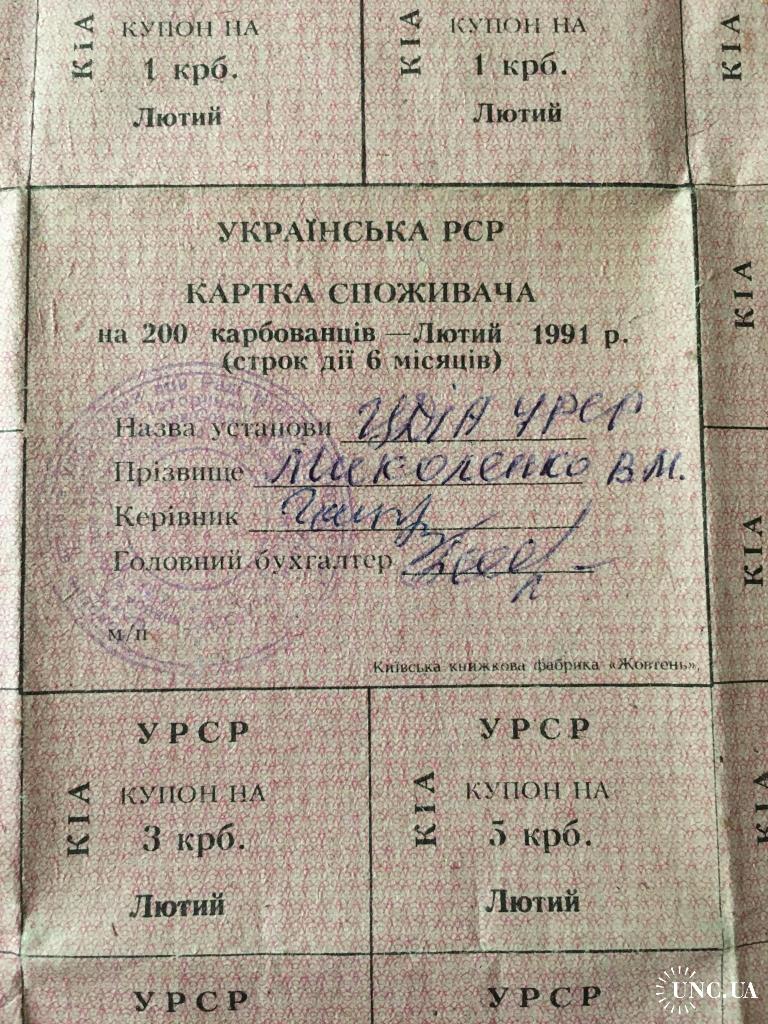 КІА КУПОН НА КІА КУПОН НА КІА
1 крб. 1 крб.
Лютий Лютий
УКРАЇНСЬКА РСР
КАРТКА СПОЖИВАЧА
на 200 карбованців — Лютий 1991 р.
(строк дії 6 місяців)
Назва установи ЦДІА УРСР
Прізвище Миколенко В.М.
Керівник
Головний бухгалтер
м/п
Київська книжкова фабрика «Жовтень»,
КІА
КІА
УРСР УРСР
КІА КУПОН НА КІА КУПОН НА КІА
3 крб. 5 крб.
Лютий Лютий
УРСР УРСР
UNC.UA